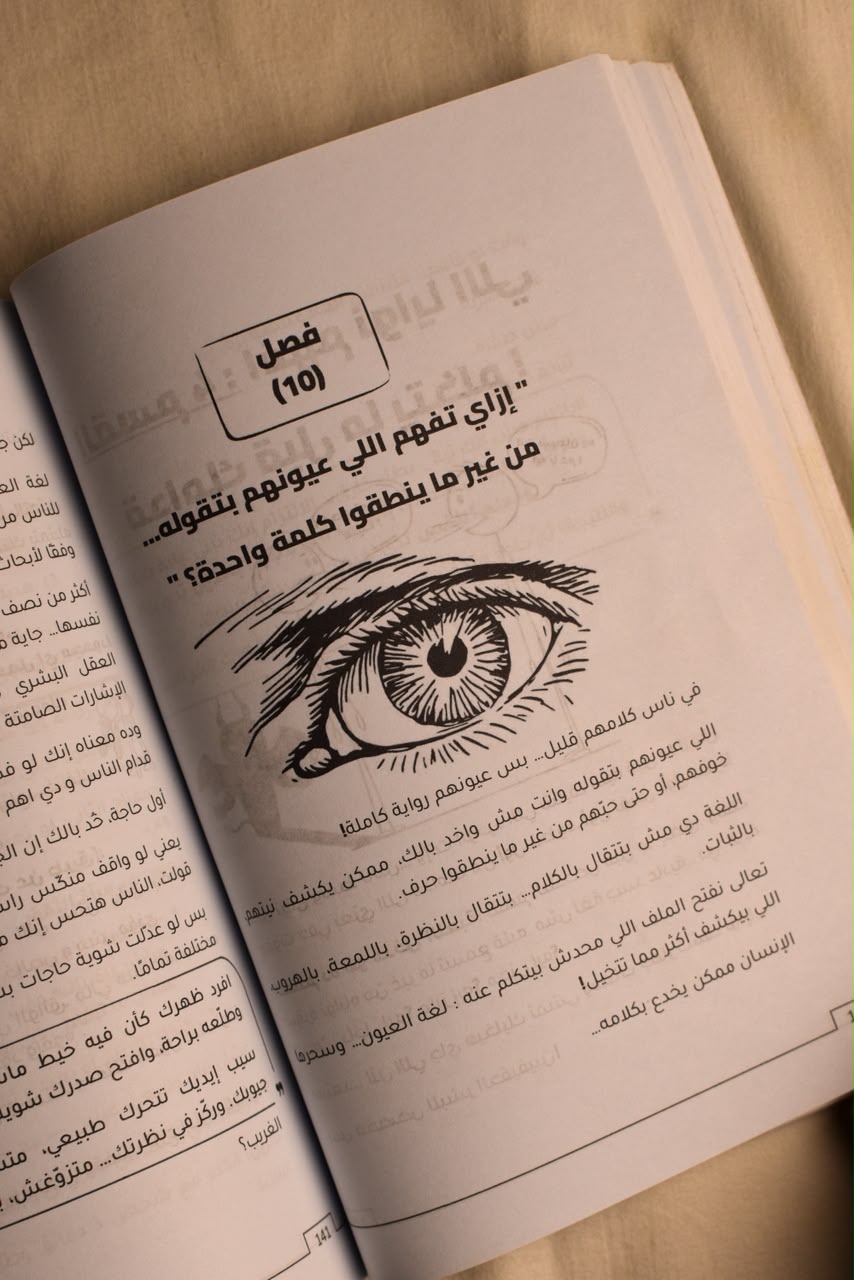 فصل
(10)
"إزاي تفهم اللي عيونهم بتقوله...
من غير ما ينطقوا كلمة واحدة؟"
في ناس كلامهم قليل... بس عيونهم رواية كاملة!
اللي عيونهم بتقوله وانت مش واخد بالك، ممكن يكشف نيتهم،
خوفهم، أو حتى حبّهم من غير ما ينطقوا حرف.
اللغة دي مش بتتقال بالكلام... بتتقال بالنظرة، باللمعة، بالهروب،
بالثبات.
تعالى نفتح الملف اللي محدش بيتكلم عنه : لغة العيون... وسحرها
اللي بيكشف أكثر مما تتخيل!
الإنسان ممكن يخدع بكلامه...
لكن
لغة
للناس
وفقًا لأبحاث
أكثر من نصف
نفسها... جاية
العقل البشري
الإشارات الصامتة
وده معناه إنك لو
قدام الناس و دي اهم
أول حاجة، خُد بالك إن
يعني لو واقف منكّس
قولت، الناس هتحس إنك
بس لو عدّلت شوية حاجات
مختلفة تمامًا.
افرد ظهرك كأن فيه خيط
وطلّعه براحة، وافتح صدرك
سيب إيديك تتحرك طبيعي،
جيوبك. وركّز في نظرتك... متزوّغش،
الغريب؟
141